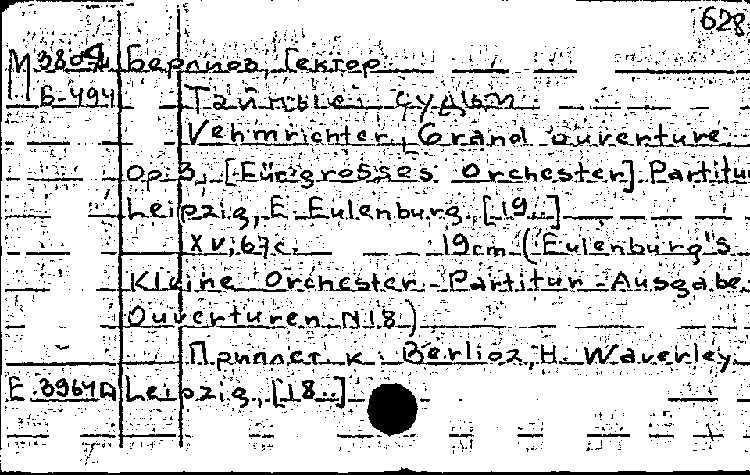 628
М 3804 Берлиоз, Гектор
Б-494 Тайные судьи
Vehmrichter, Grand ouverture
Op. 3, [Für grosses Orchester] Partitu
Leipzig, E. Eulenburg, [19..]
XV; 67c. 19cm (Eulenburg's
Kleine Orchester-Partitur-Ausgabe.
Ouverturen N18)
Приплет. к. Berlioz, H. Waverley.
Leipzig, [18..]